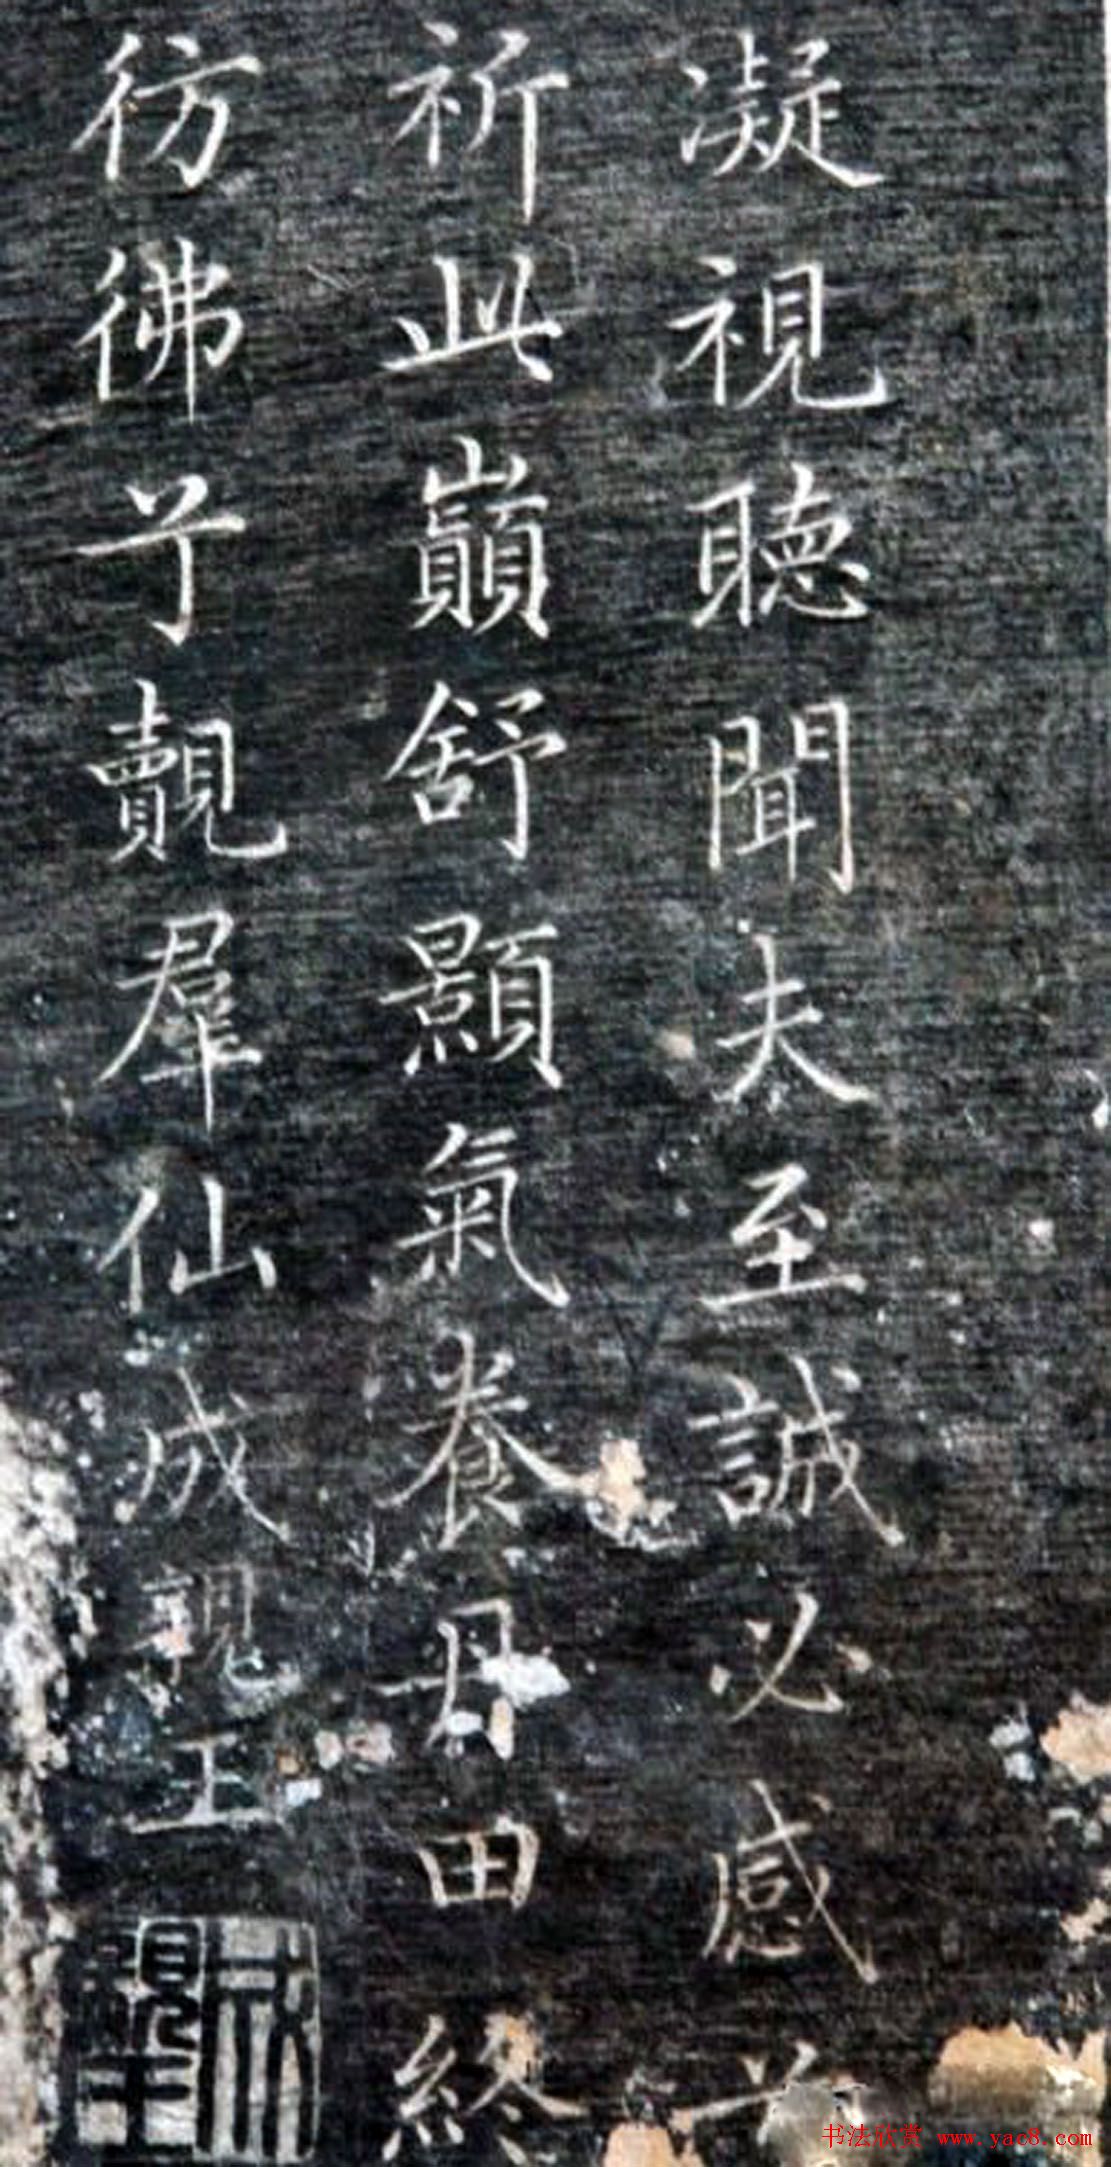 凝視聽聞夫至誠必感
祈此巔舒顥氣養丹田終
彷彿兮覿羣仙成親王
成親王
书法欣赏 www.yac8.com